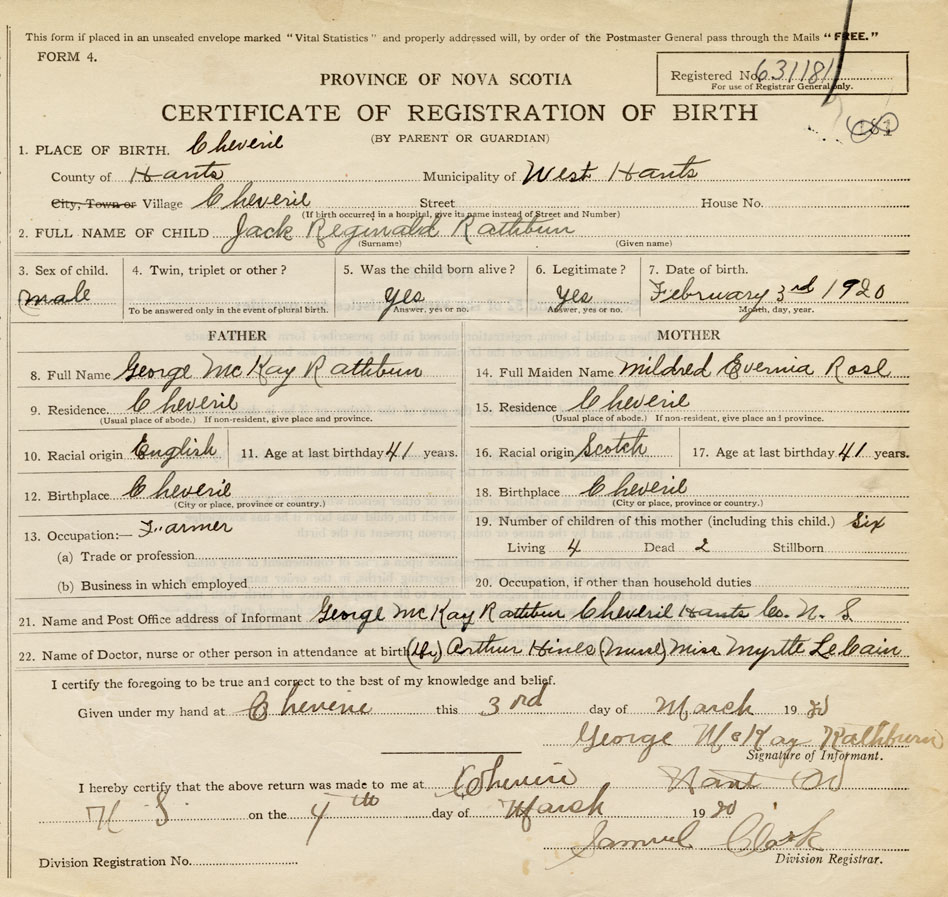 This form if placed in an unsealed envelope marked "Vital Statistics" and properly addressed will, by order of the Postmaster General pass through the Mails "FREE."
FORM 4.
PROVINCE OF NOVA SCOTIA
Registered No. 631181
For use of Registrar General only.
CERTIFICATE OF REGISTRATION OF BIRTH
(BY PARENT OR GUARDIAN)
1. PLACE OF BIRTH. Cheverie
County of Hants Municipality of West Hants
City, Town or Village Cheverie Street House No.
(If birth occurred in a hospital, give its name instead of Street and Number)
2. FULL NAME OF CHILD Jack Reginald Rathburn
(Surname) (Given name)
3. Sex of child. 4. Twin, triplet or other? 5. Was the child born alive? 6. Legitimate? 7. Date of birth.
male yes Yes February 3rd 1920
To be answered only in the event of plural birth. Answer, yes or no. Answer, yes or no. Month, day, year.
FATHER MOTHER
8. Full Name George McKay Rathburn 14. Full Maiden Name Mildred Evernia Rose
9. Residence. Cheverie 15. Residence Cheverie
(Usual place of abode.) If non-resident, give place and province. (Usual place of abode.) If non-resident, give place and province.
10. Racial origin English 11. Age at last birthday 41 years. 16. Racial origin Scotch 17. Age at last birthday 41 years.
12. Birthplace Cheverie 18. Birthplace Cheverie
(City or place, province or country.) (City or place, province or country.)
13. Occupation:— Farmer 19. Number of children of this mother (including this child.) Six
(a) Trade or profession Living 4 Dead 2 Stillborn
(b) Business in which employed 20. Occupation, if other than household duties
21. Name and Post Office address of Informant George McKay Rathbur Cheverie Hants Co. N. S
22. Name of Doctor, nurse or other person in attendance at birth Arthur Hines (nurse) Miss Myrtle LeCain
I certify the foregoing to be true and correct to the best of my knowledge and belief.
Given under my hand at Cheverie this 3rd day of March 1920
George McKay Rathburn
Signature of Informant.
I hereby certify that the above return was made to me at Cheverie Hant
N S on the 4th day of Marsh 1920
Samuel Clark
Division Registrar.
Division Registration No.